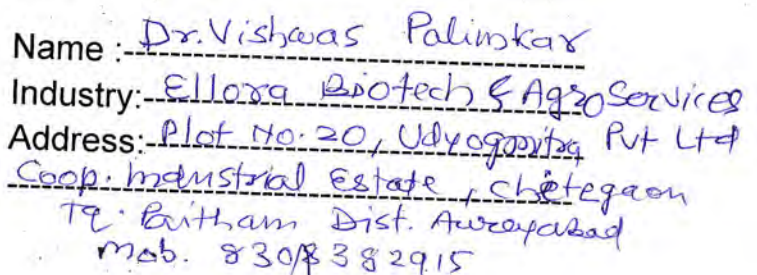 Name :- Dr. Vishwas Palimkar
Industry:- Ellora Biotech & Agro Services
Address:- Plot No. 20, Udyogmitra Pvt Ltd
Coop. Industrial Estate, Chitegaon
Tq. Paithan Dist. Aurangabad
Mob. 8382915